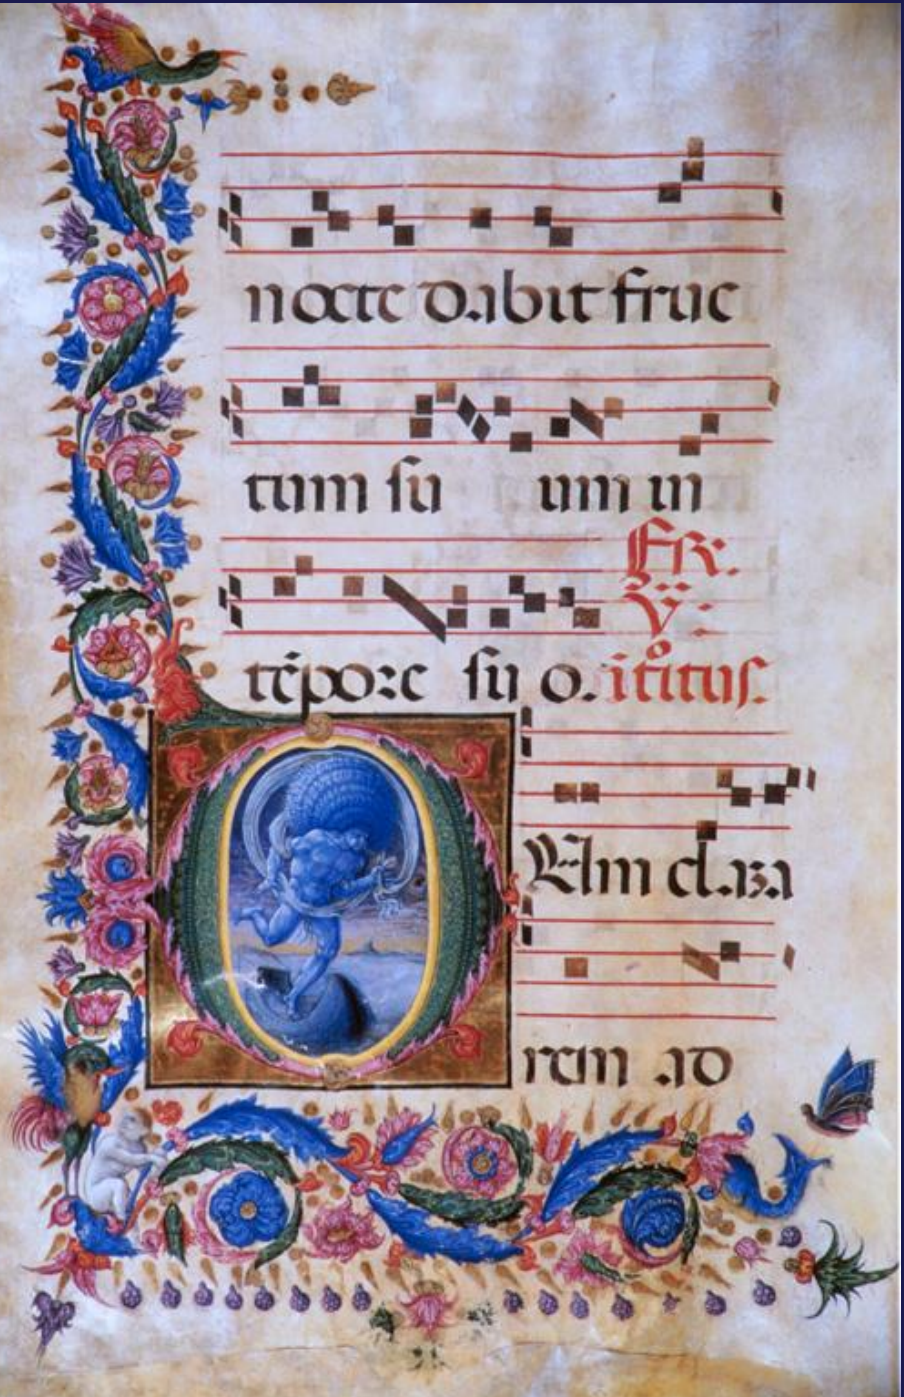 nocte dabit fruc
tum su um in
FR.
V:
tēpore su o. ītroitus.
DUm clama
rem ad